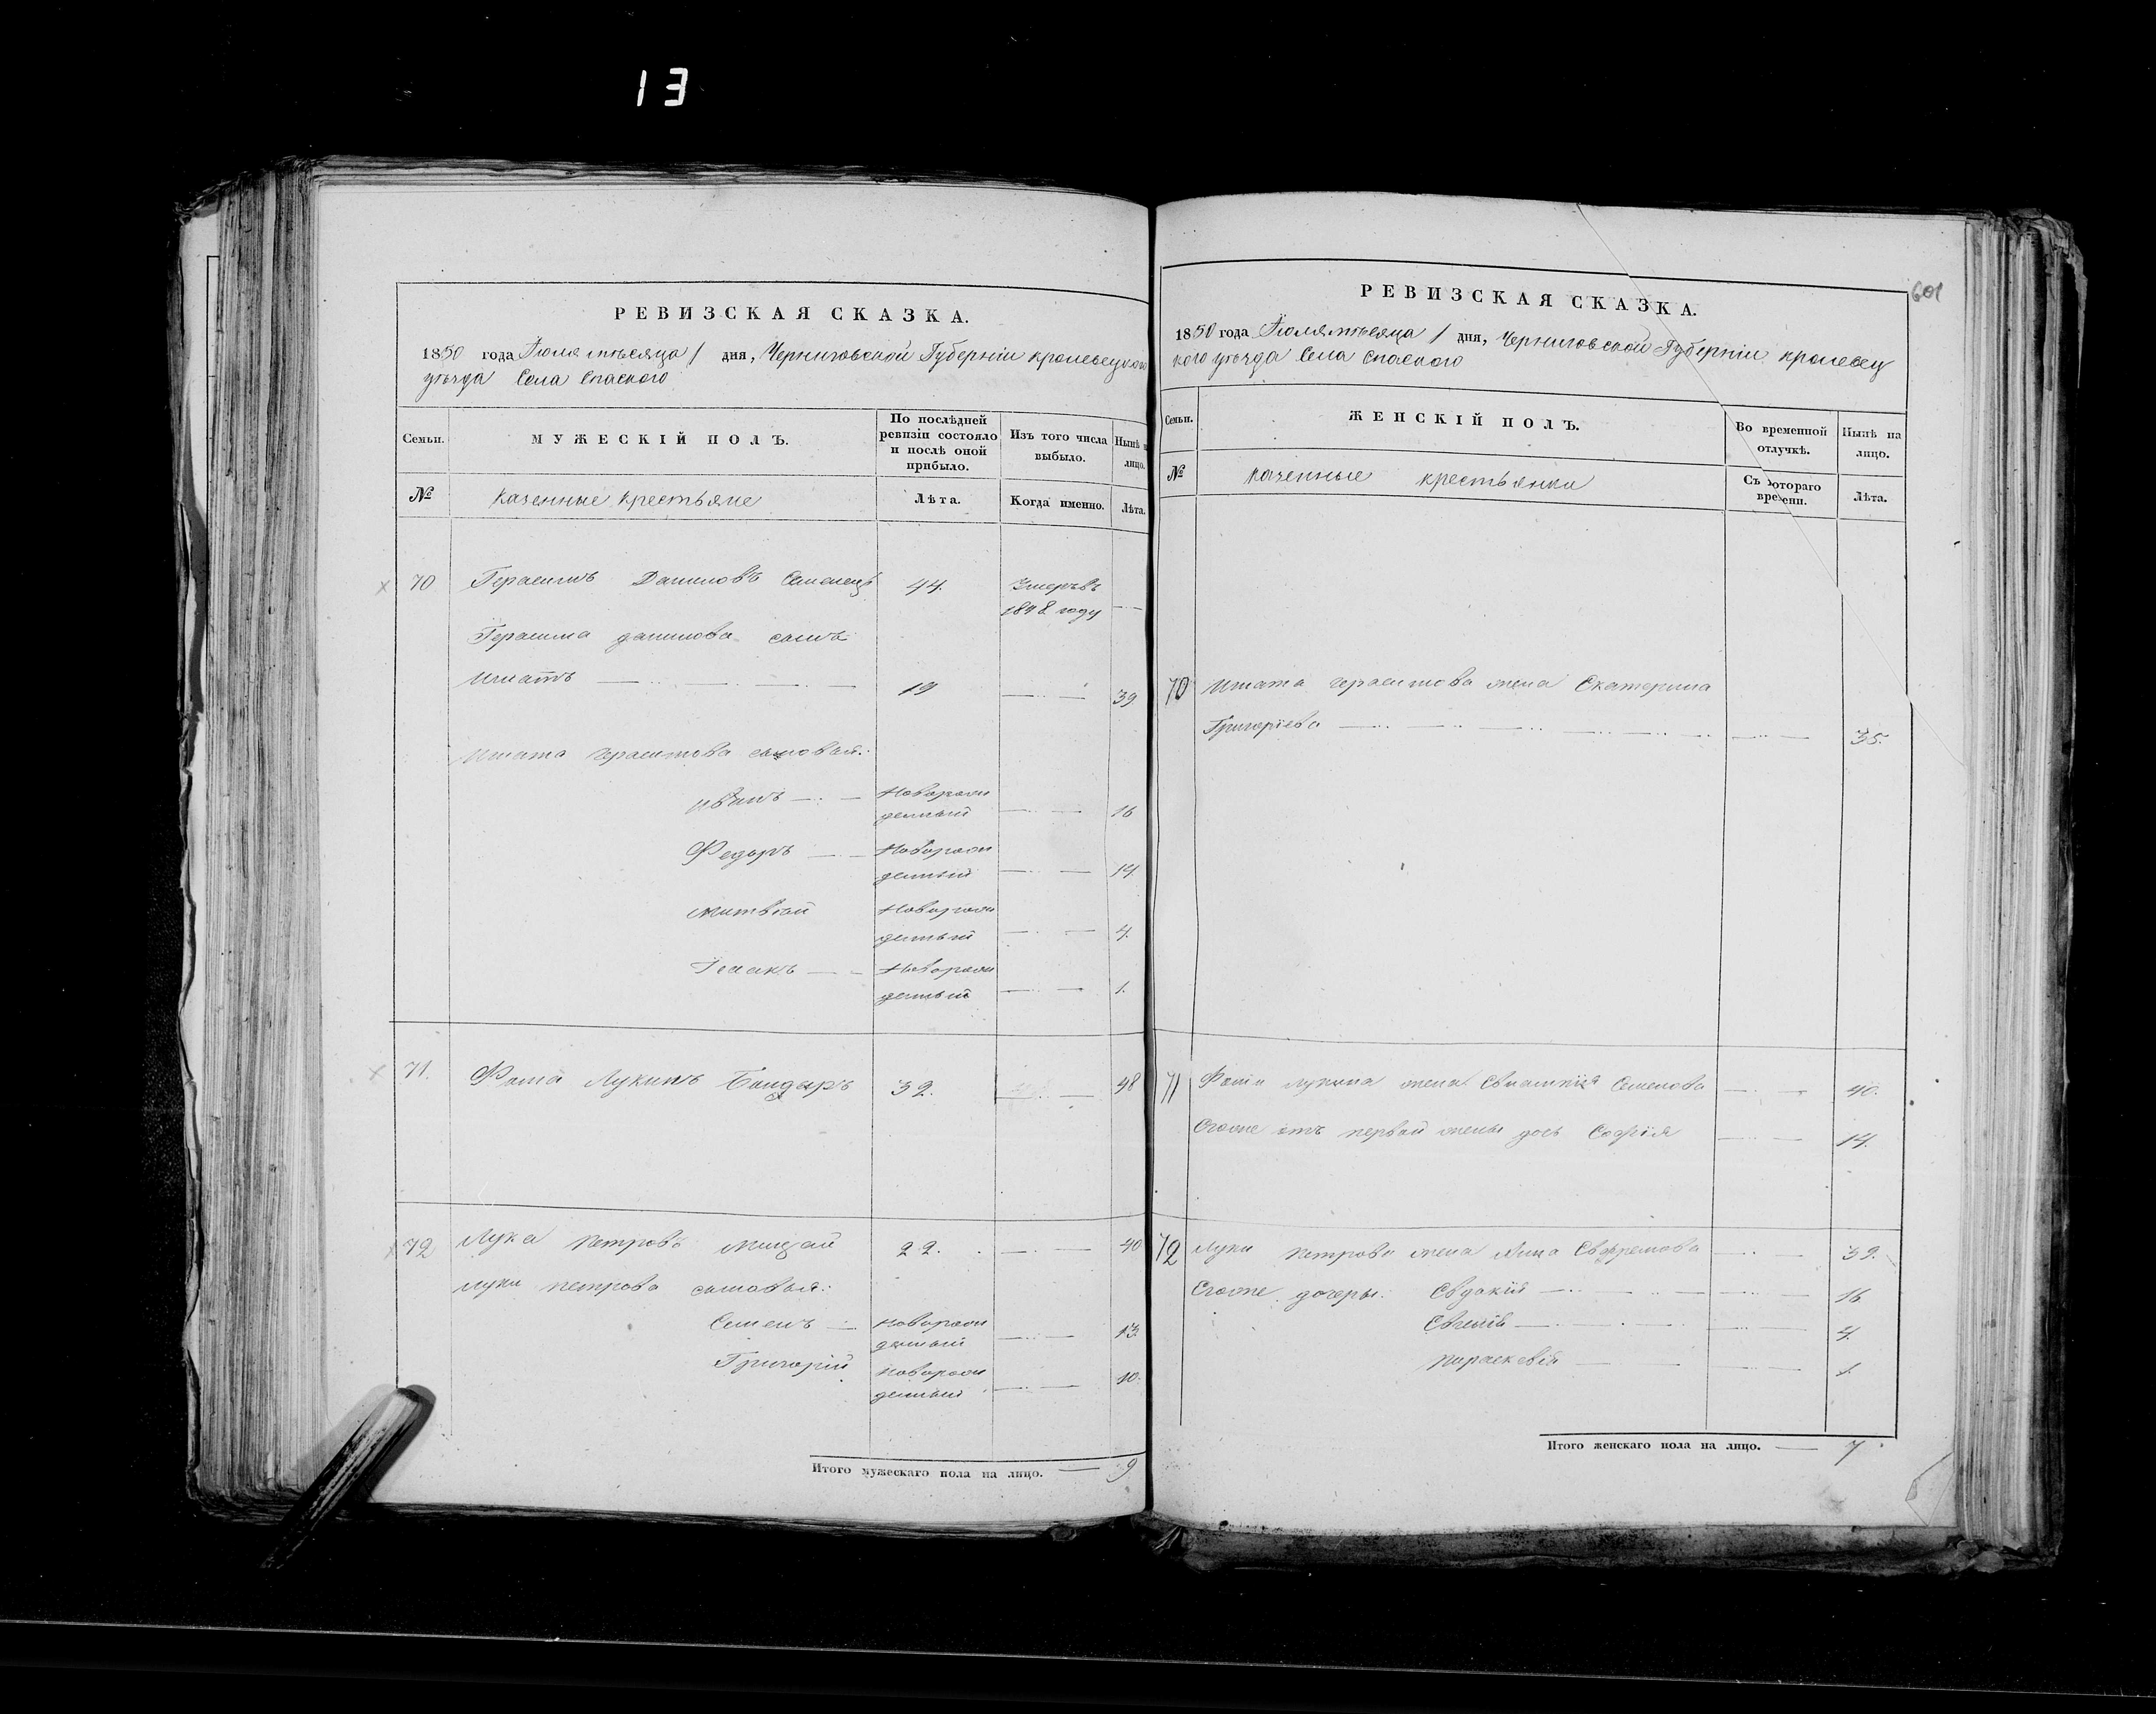 13
РЕВИЗСКАЯ СКАЗКА.
1850 года Іюля мѣсяца 1 дня, Черниговской Губерніи Кролевецкого
уѣзда Села Спаского
Семьи.
МУЖЕСКІЙ ПОЛЪ.
По послѣдней ревизіи состояло и послѣ оной прибыло.
Изъ того числа выбыло.
Нынѣ на лицо.
№
казенные крестьяне
Лѣта.
Когда именно.
Лѣта.
70 Герасимъ Даниловъ 44. Умеръ въ
1848 году
Герасима данилова сынъ
Игнатъ 19 39
Игната Герасимова сыновья:
иванъ Новорож
денный 16
Федоръ Новорож
денный 14
матвѣй Новорож
денный 4.
Исаакъ Новорож
денный 1.
71. Фома Лукинъ Бондыръ 32. 48
72 Лука петровъ 22. 40
луки петрова сыновья:
Семенъ Новорож
денный 13
Григорій Новорож
денный 10.
Итого мужескаго пола на лицо. 9
601
РЕВИЗСКАЯ СКАЗКА.
1850 года Іюля мѣсяца 1 дня, Черниговской Губерніи кролевец
кого уѣзда Села Спаского
Семьи.
ЖЕНСКІЙ ПОЛЪ.
Во временной отлучкѣ.
Нынѣ на лицо.
№
казенные крестьянки
Съ котораго времени.
Лѣта.
70 Игната герасимова жена Екатерина
Григоріева 35.
71 Фомы лукина жена Семенова 40.
Егоже отъ первой жены дочь Софія 14.
72 Луки петрова жена Анна Евфремова 39.
Егоже дочеры: Евдокія 16
Евгенія 4.
параскевія 1.
Итого женскаго пола на лицо. 7